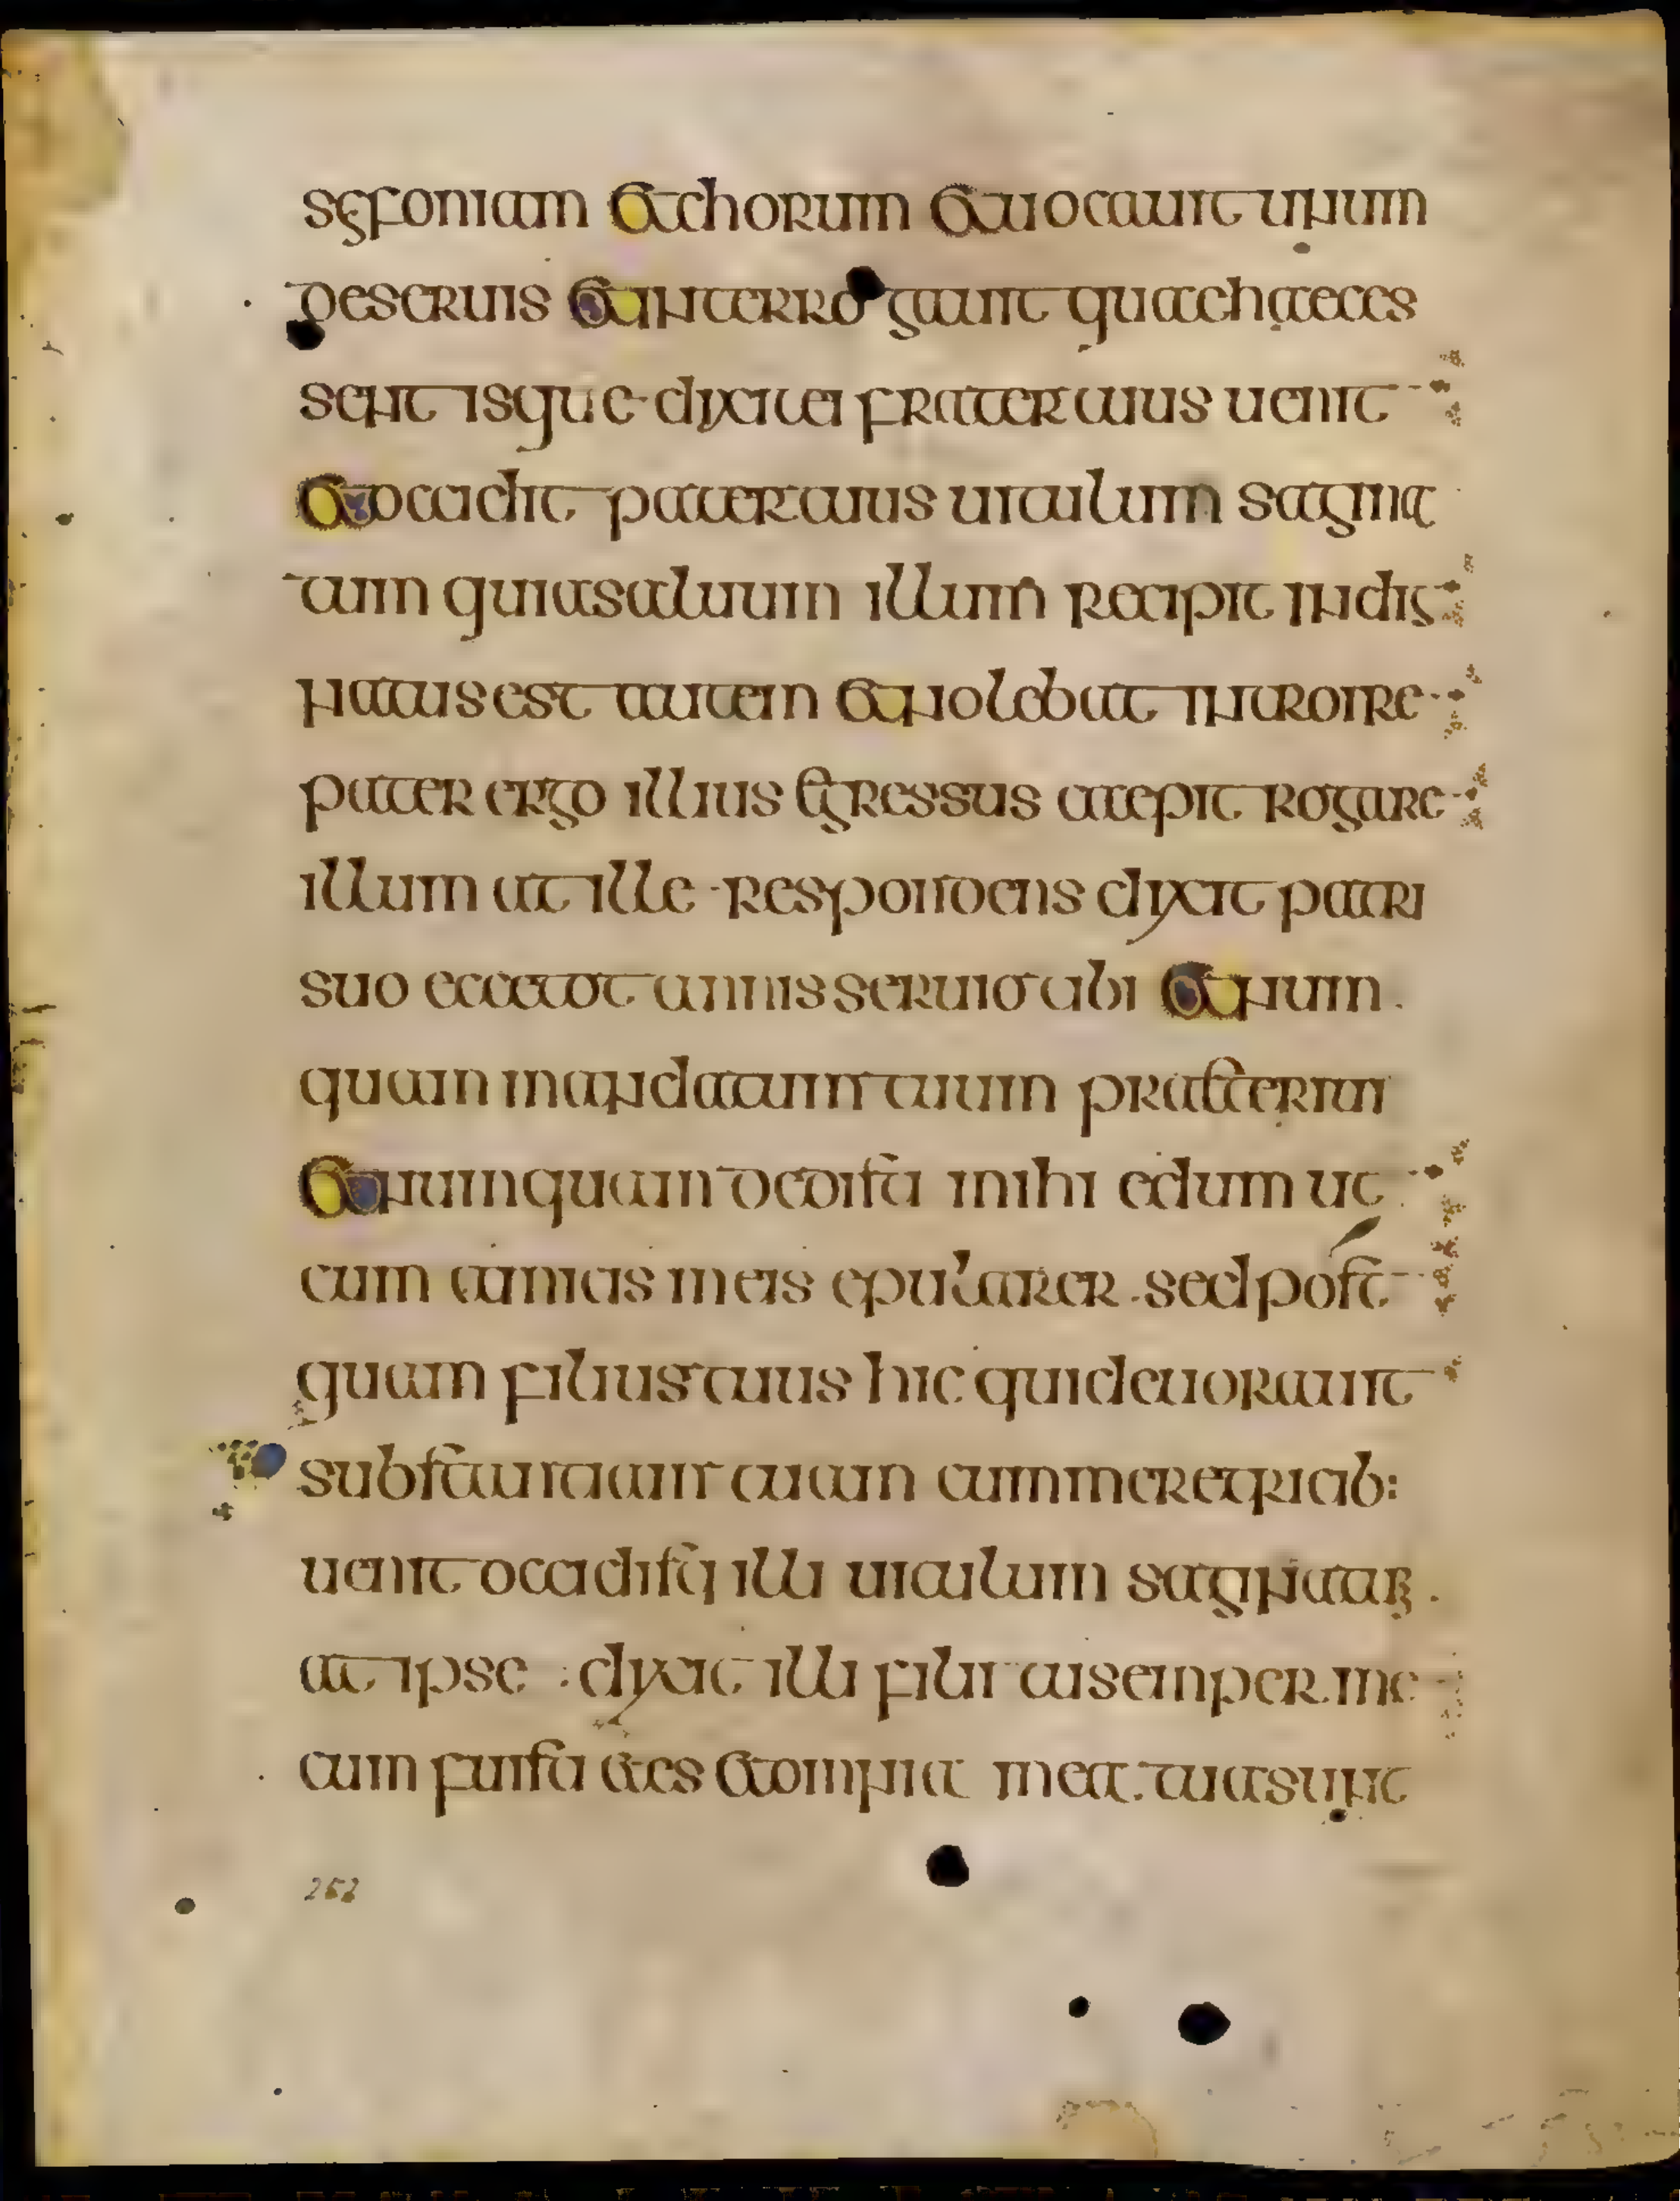 sefoniam & chorum & uocauit unum
de seruis & interrogauit quae haec es
sent isque dixit ei frater tuus uenit
& occidit pater tuus uitulum sagina
tum quia saluum illum recipit indig
natus est autem & nolebat introire
pater ergo illius egressus coepit rogare
illum at ille respondens dixit patri
suo ecce tot annis seruio tibi & num
quam mandatum tuum praeteriui
& numquam dedisti mihi edum ut
cum amicis meis epularer sed post
quam filius tuus hic qui deuorauit
substantiam tuam cum meretricib:
uenit occidisti illi uitulum saginatū
at ipse dixit illi fili tu semper me
cum fuisti & es & omnia mea tua sunt
262